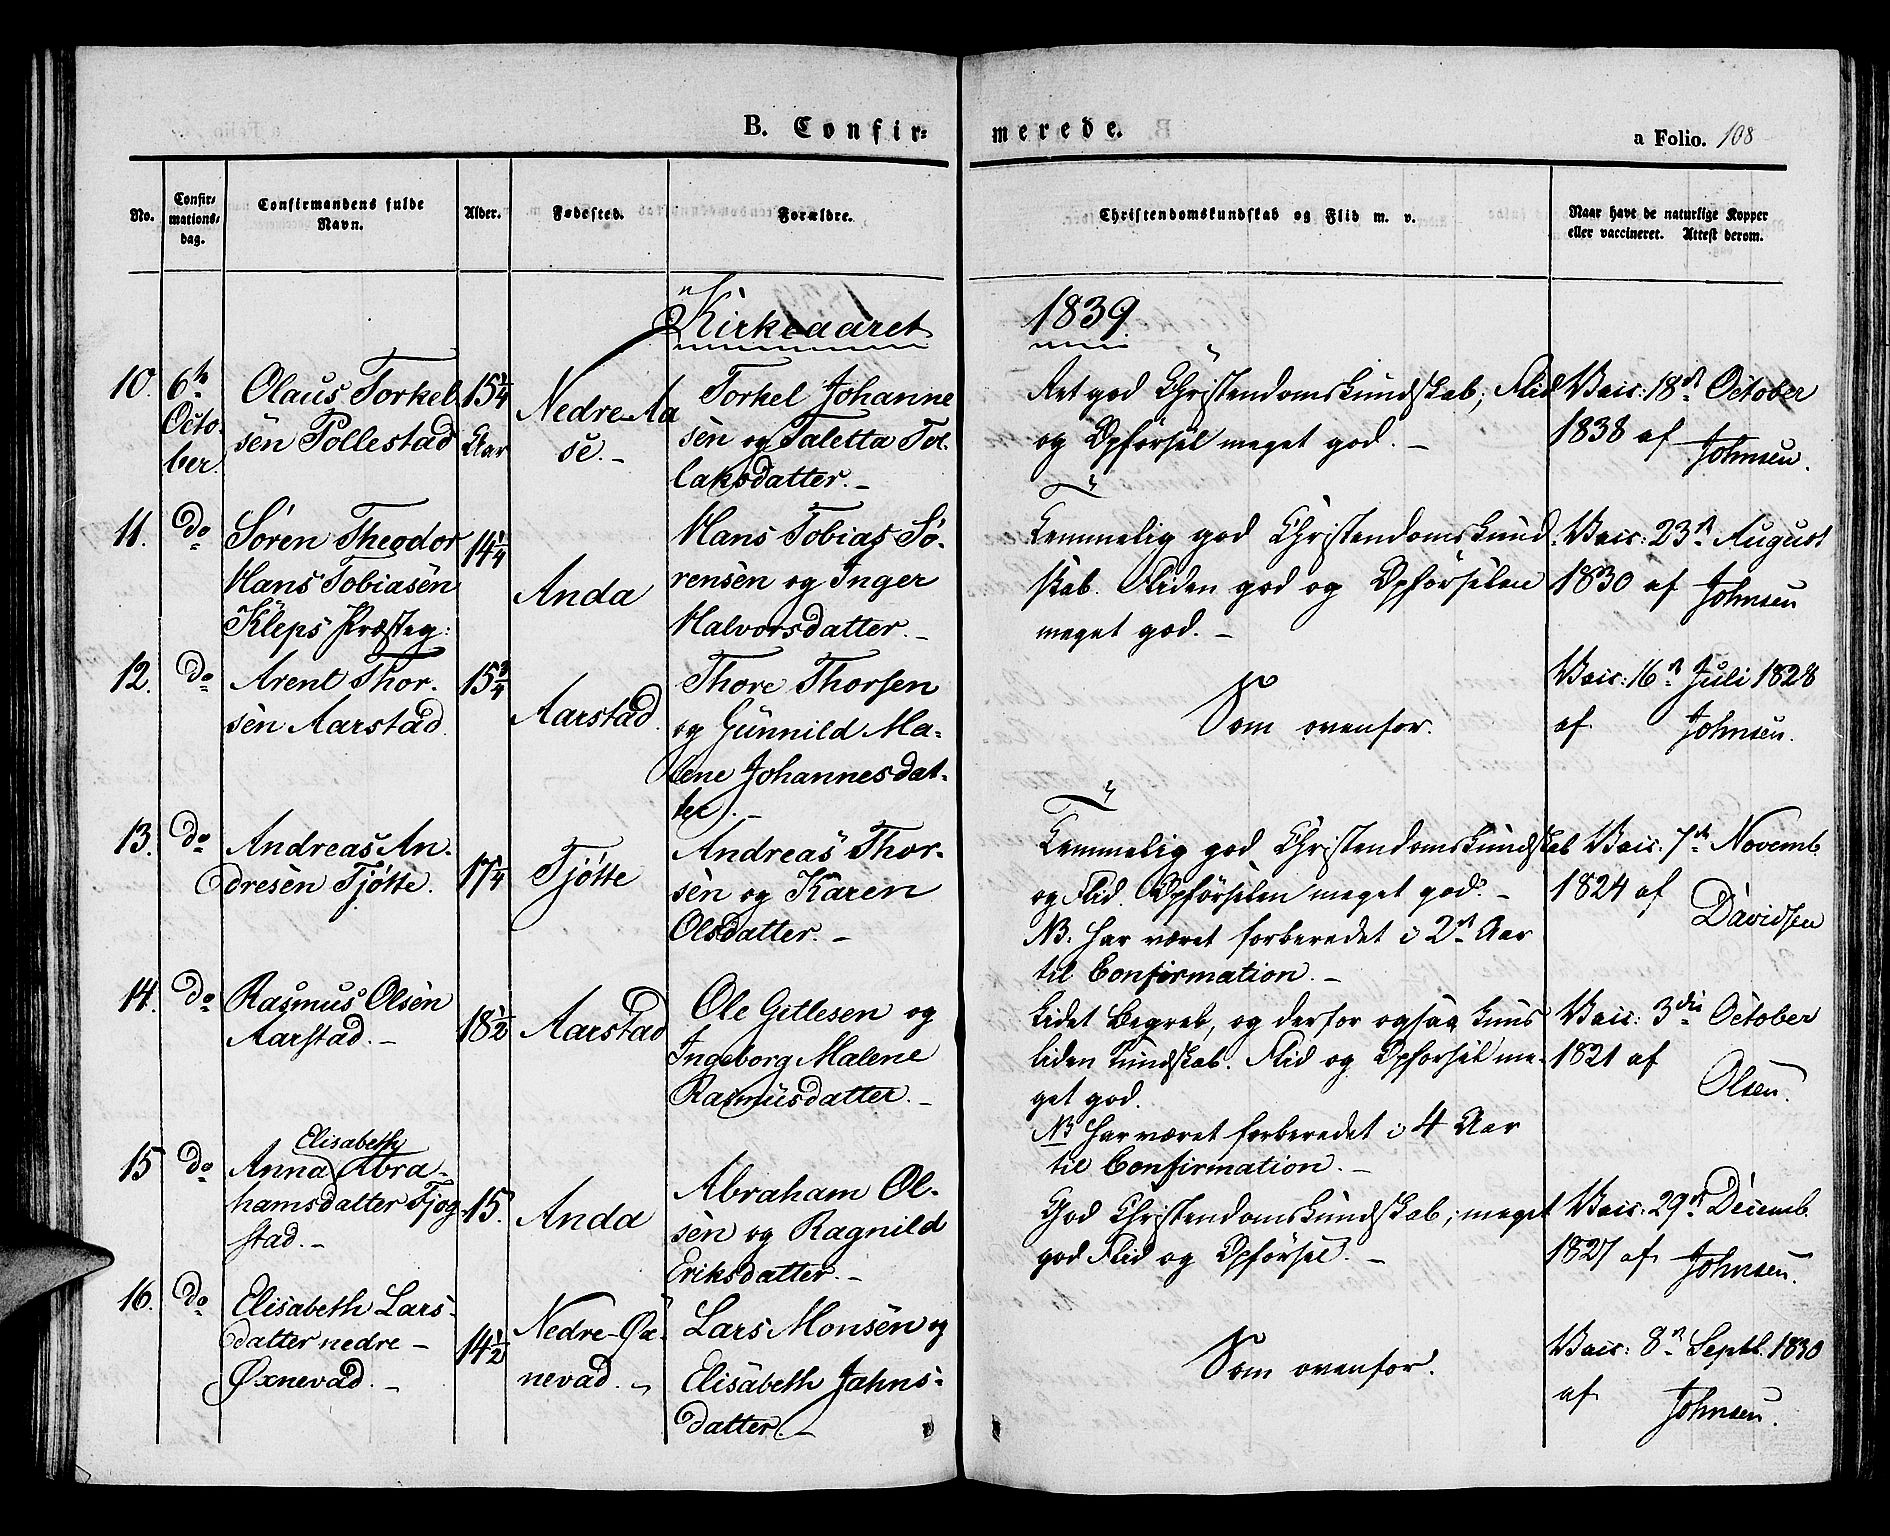 B. Confir=
merede.
a Folio. 108
No.
Confir=
mations=
dag.
Confirmandens fulde
Navn.
Alder.
Fødested.
Forældre.
Christendomskundskab og Flid m. v.
Naar havt de naturlige Kopper
eller vaccineret. Attest derom.
Kirkeaaret
1839.
10.
6te
Octo-
ber.
Olaus Torkel
sen Pollestad
15 1/4
Aar
Nedre-Aa
se.-
Torkel Johanne
sen og Taletta Tol-
laksdatter.-
Ret god Christendomskundskab; Flid
og Opførsel meget god.-
Vacc: 18de October
1838 af
Johnsen.
11.
do
Søren Theodor
Hans Tobiasen
Kleps Præsteg:
14 1/4
Anda
Hans Tobias Sø-
rensen og Inger
Halvorsdatter.-
Temmelig god Christendomskund-
skab. Fliden god og Opførselen
meget god.-
Vacc: 23de August
1830 af
Johnsen
12.
do
Arent Thor-
sen Aarstad.
15 3/4
Aarstad.
Thore Thorsen
og Gunnild Ma-
lene Johannesdat-
ter.-
Som ovenfor.
Vacc: 16de Juli 1828
af
Johnsen.
13.
do
Andreas An-
dresen Tjøtte.
17 1/4
Tjøtte
Andreas Thor-
sen og Karen
Olsdatter.-
Temmelig god Christendomskundskab
og Flid. Opførselen meget god.-
NB. Har været forberedet i 2de Aar
til Confirmation.-
Vacc. 7de Novemb.
1824 af
Davidsen
14.
do
Rasmus Olsen
Aarstad.-
18 1/2
Aarstad
Ole Gitlesen og
Ingeborg Malene
Rasmusdatter.-
Lidet Begreb, og derfor ogsaa kuns
liden Kundskab. Flid og Opførsel me-
get god.
NB Har været forberedet i 4 Aar
til Confirmation.-
Vacc: 3die October
1821 af
Olsen.
15
do
Elisabeth
Anna Abra-
hamsdatter Tjøg-
stad.-
15.
Anda
Abraham Ol-
sen og Ragnild
Eriksdatter.-
God Christendomskundskab; meget
god Flid og Opførsel.-
Vacc: 29de Decemb.
1827 af
Johnsen.
16.
do
Elisabeth Lars-
datter nedre-
Øxnevad.-
14 1/2
Nedre-Øx-
nevad.-
Lars Monsen og
Elisabeth Jahns-
datter.-
Som ovenfor.
Vacc: 8de Septb. 1830
af
Johnsen.